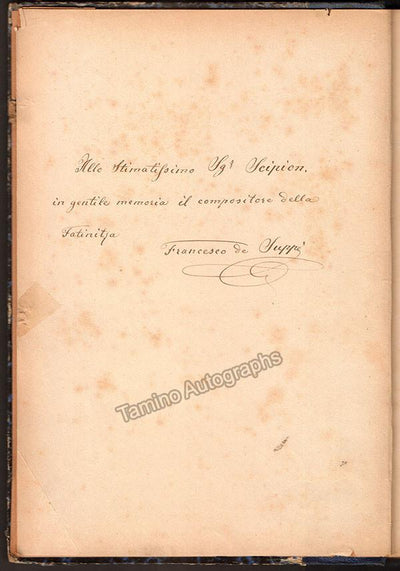 Allo Stimatissimo Sgr Scipion.
in gentile memoria il compositore della
Fatinitza
Francesco de Suppé
Tamino Autographs